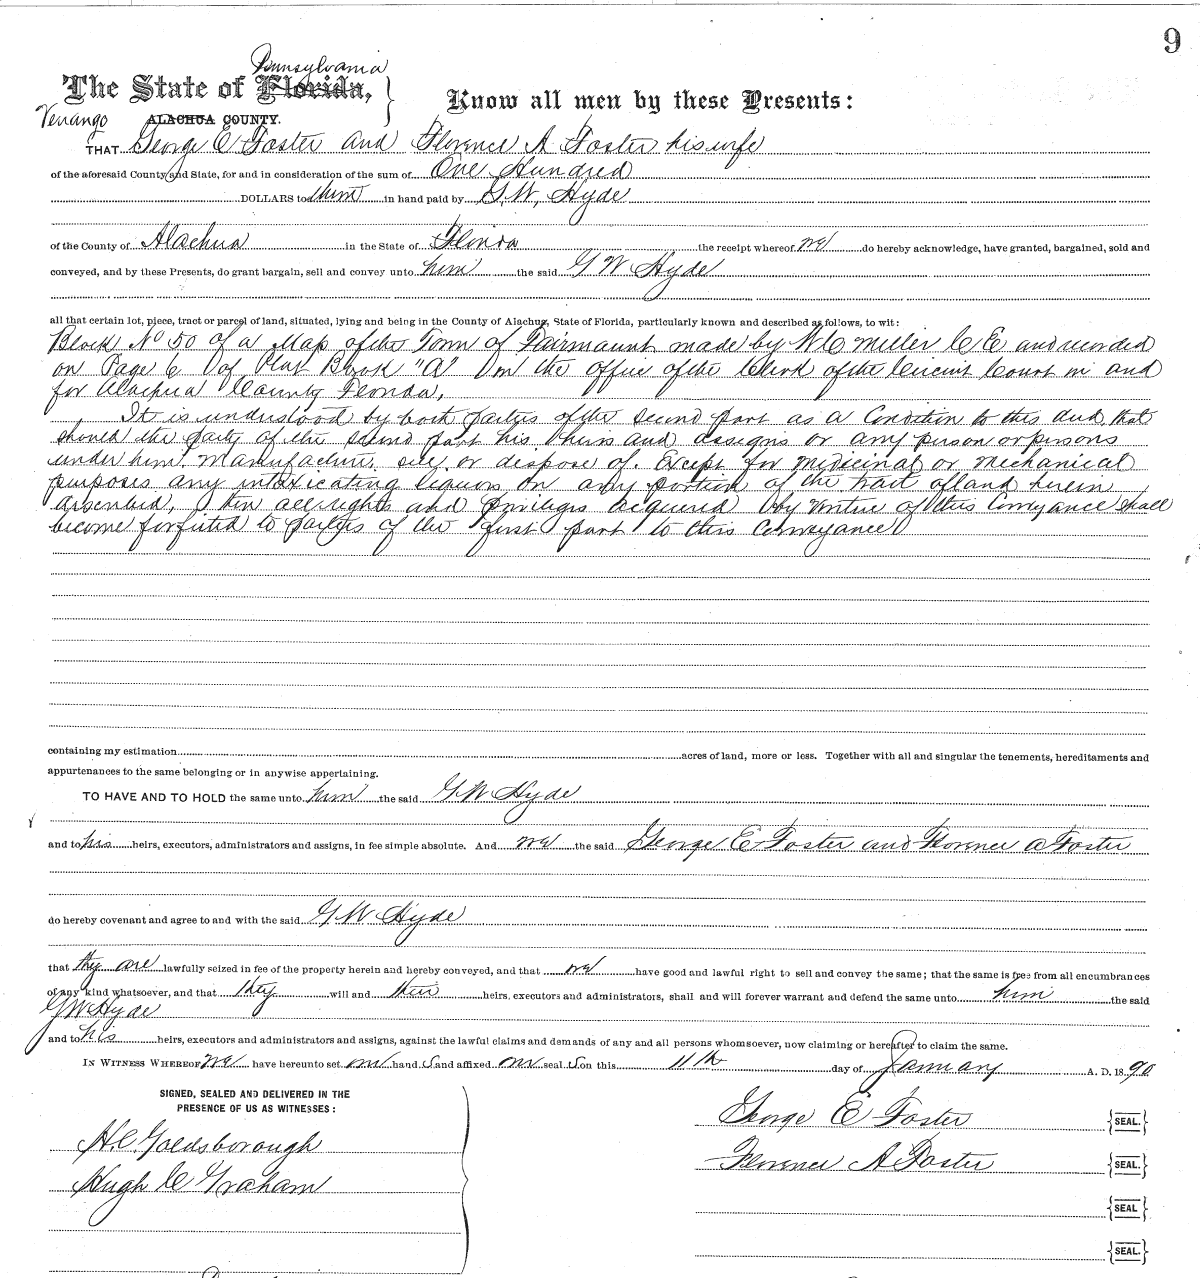 9
Pennsylvania
The State of Florida,
Venango ALACHUA COUNTY.
Know all men by these Presents:
THAT George E Foster and Florence A Foster his wife
of the aforesaid County and State, for and in consideration of the sum of One Hundred
DOLLARS to him in hand paid by G. W. Hyde
of the County of Alachua in the State of Florida the receipt whereof we do hereby acknowledge, have granted, bargained, sold and
conveyed, and by these Presents, do grant bargain, sell and convey unto him the said G W Hyde
all that certain lot, piece, tract or parcel of land, situated, lying and being in the County of Alachua, State of Florida, particularly known and described as follows, to wit:
Block No 50 of a Map of the Town of Fairmount made by W C Miller C E and recorded
on Page 6 of Plat Book "A" in the office of the Clerk of the Circuit Court in and
for Alachua County Florida.
It is understood by both parties of the second part as a Condition to this deed, that
should the party of the second part his heirs and assigns or any person or persons
under him, manufacture, sell or dispose of, Except for medicinal or mechanical
purposes any intoxicating liquors on any portion of the tract of land herein
described, then all rights and privileges acquired by virtue of this Conveyance shall
become forfeited to parties of the first part to this Conveyance
containing my estimation acres of land, more or less. Together with all and singular the tenements, hereditaments and
appurtenances to the same belonging or in anywise appertaining.
TO HAVE AND TO HOLD the same unto him the said G W Hyde
and to his heirs, executors, administrators and assigns, in fee simple absolute. And we the said George E Foster and Florence A Foster
do hereby covenant and agree to and with the said G W Hyde
that they are lawfully seized in fee of the property herein and hereby conveyed, and that we have good and lawful right to sell and convey the same; that the same is free from all encumbrances
of any kind whatsoever, and that they will and their heirs, executors and administrators, shall and will forever warrant and defend the same unto him the said
G W Hyde
and to his heirs, executors and administrators and assigns, against the lawful claims and demands of any and all persons whomsoever, now claiming or hereafter to claim the same.
IN WITNESS WHEREOF we have hereunto set our hand S and affixed our seal S on this 11th day of January A. D. 1890
SIGNED, SEALED AND DELIVERED IN THE
PRESENCE OF US AS WITNESSES:
George E Foster SEAL.
H. C. Goldsborough
Florence A Foster SEAL.
Hugh C Graham
SEAL
SEAL.